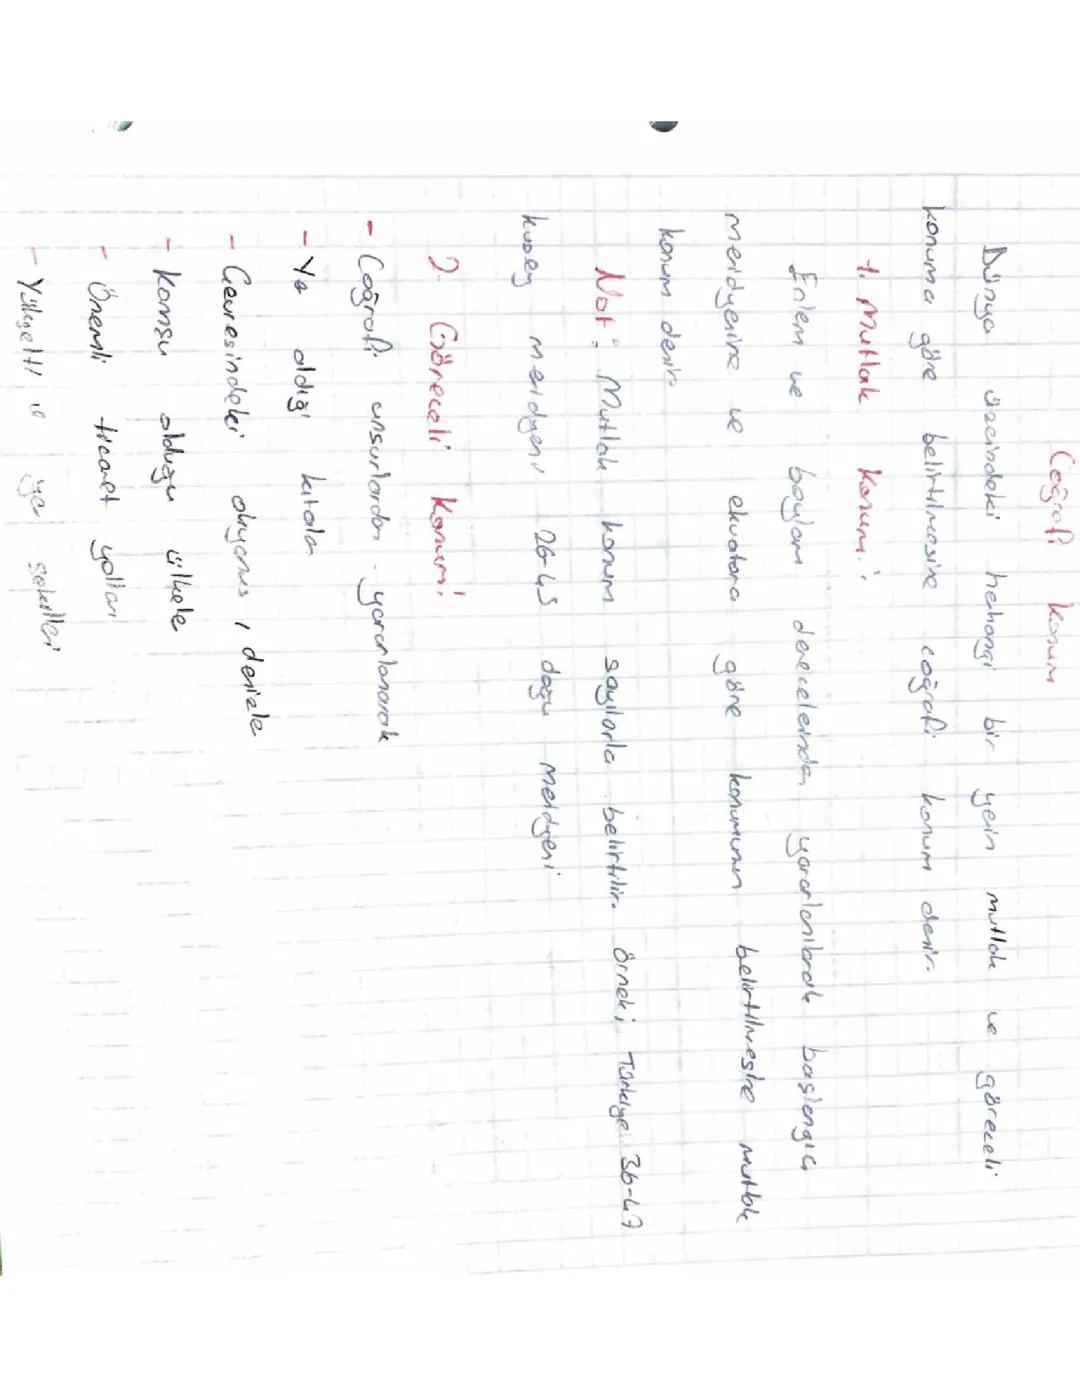 Coğrafi konum
Dünya üzerindeki herhangi bir yerin mutlak ve göreceli
konuma göre belirtilmesine coğrafi konum denir.
1. Mutlak Konum:
Enlem ve boylam derecelerinden yararlanılarak başlangıç
meridyenine ve ekvatora göre konumunun belirtilmesine mutlak
konum denir.
Not: Mutlak konum sayılarla belirtilir. örnek; Türkiye 36-42
kuzey meridyeni 26-45 doğu meridyeni
2- Göreceli Konum:
- Coğrafi unsurlardan yararlanarak
- Ye aldığı kıtala
- Çevresindeki okyanus, denizle
- Komşu olduğu ülkele
- Önemli ticaret yolları
- Yükselti ve ye şekilleri